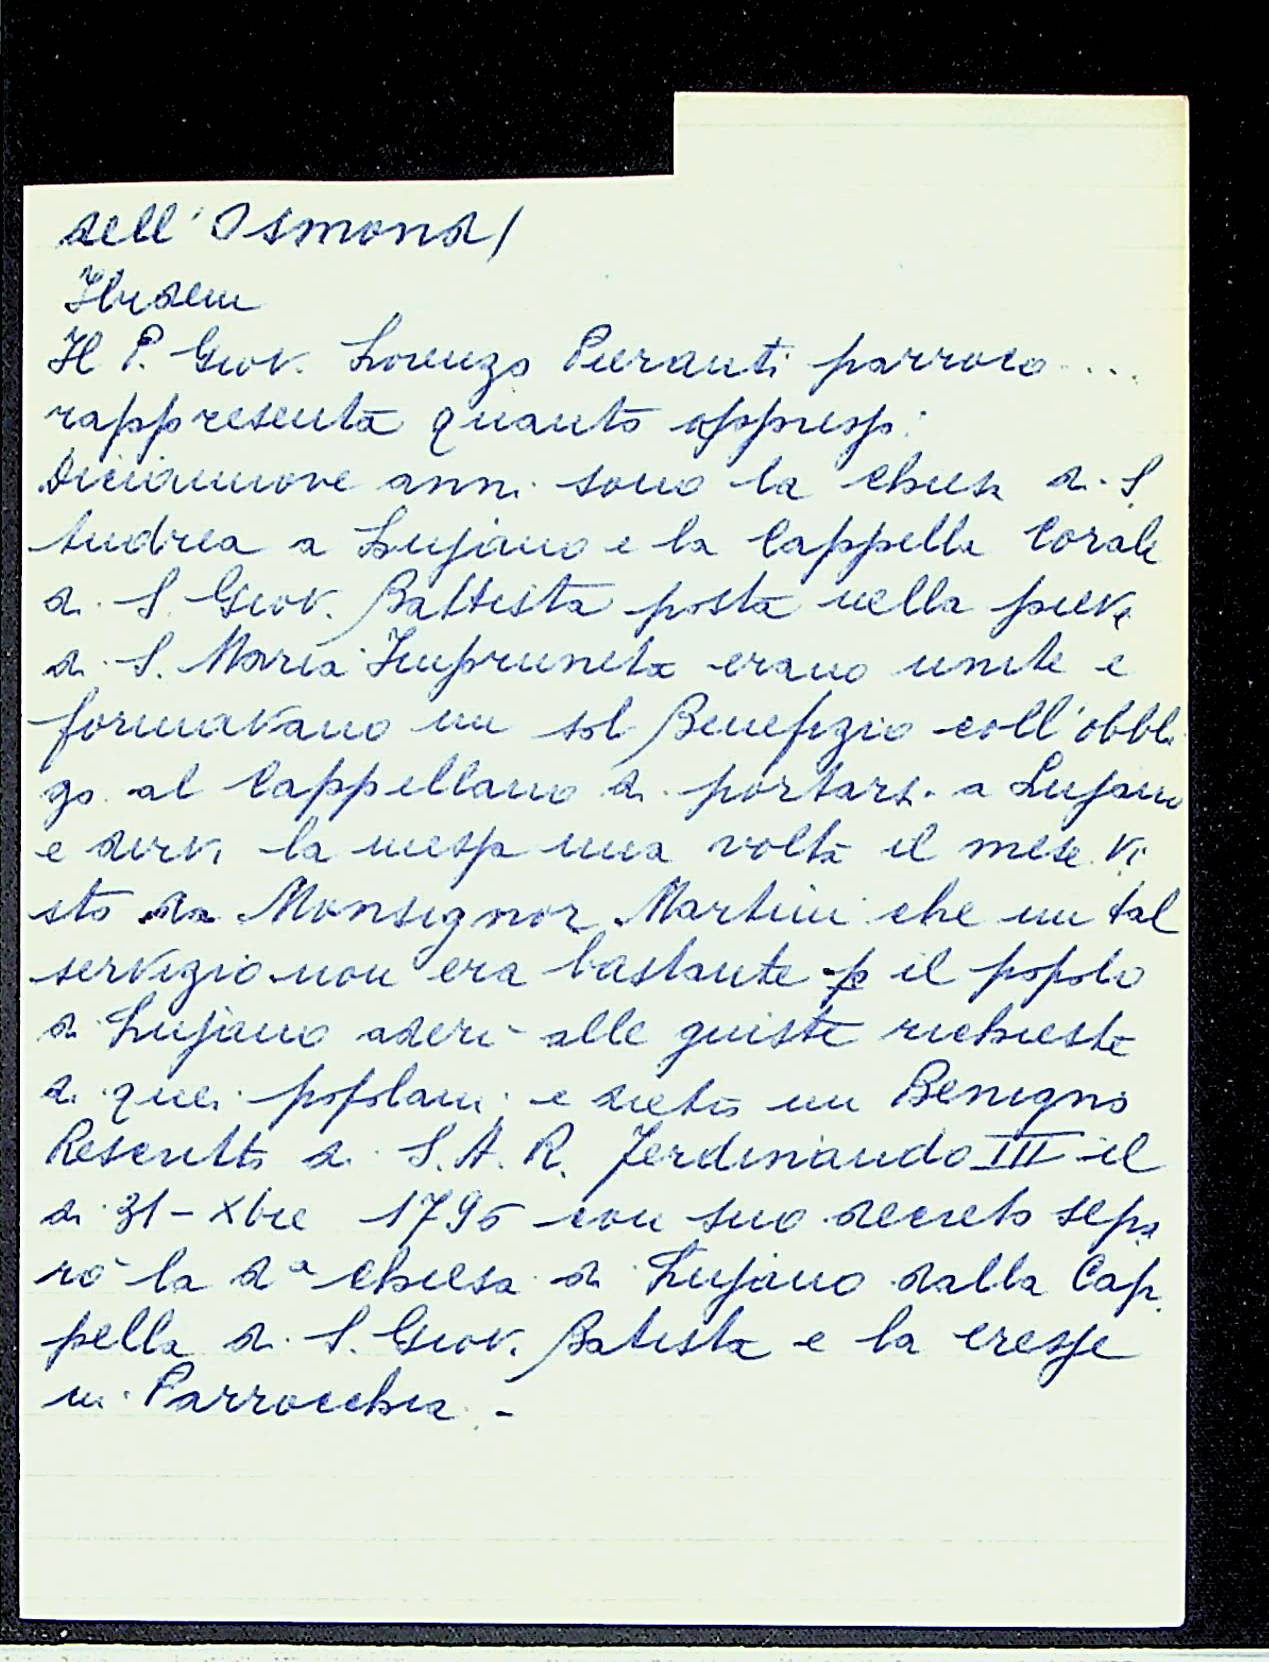 dell'Osmond/
Ibidem
Il P. Giov. Lorenzo Pieranti parroco ....
rappresenta quanto appresso:
Diciannove anni sono la chiesa di S.
Andrea a Lujano e la Cappella Corale
di S. Giov. Battista posta nella pieve
di S. Maria Impruneta erano unite e
formavano un sol Benefizio coll'obbli
go al Cappellano di portarsi a Lujano
e dirvi la messa una volta il mese. Vi
sto da Monsignor Martini che un tal
servizio non era bastante p il popolo
di Lujano aderì alle giuste richieste
di quei popolani e dietro un Benigno
Rescritto di S.A.R. Ferdinando III il
di 31 - Xbre 1795 con suo decreto sepa
rò la dª chiesa di Lujano dalla Cap
pella di S. Giov. Batista e la eresse
in Parrocchia. -